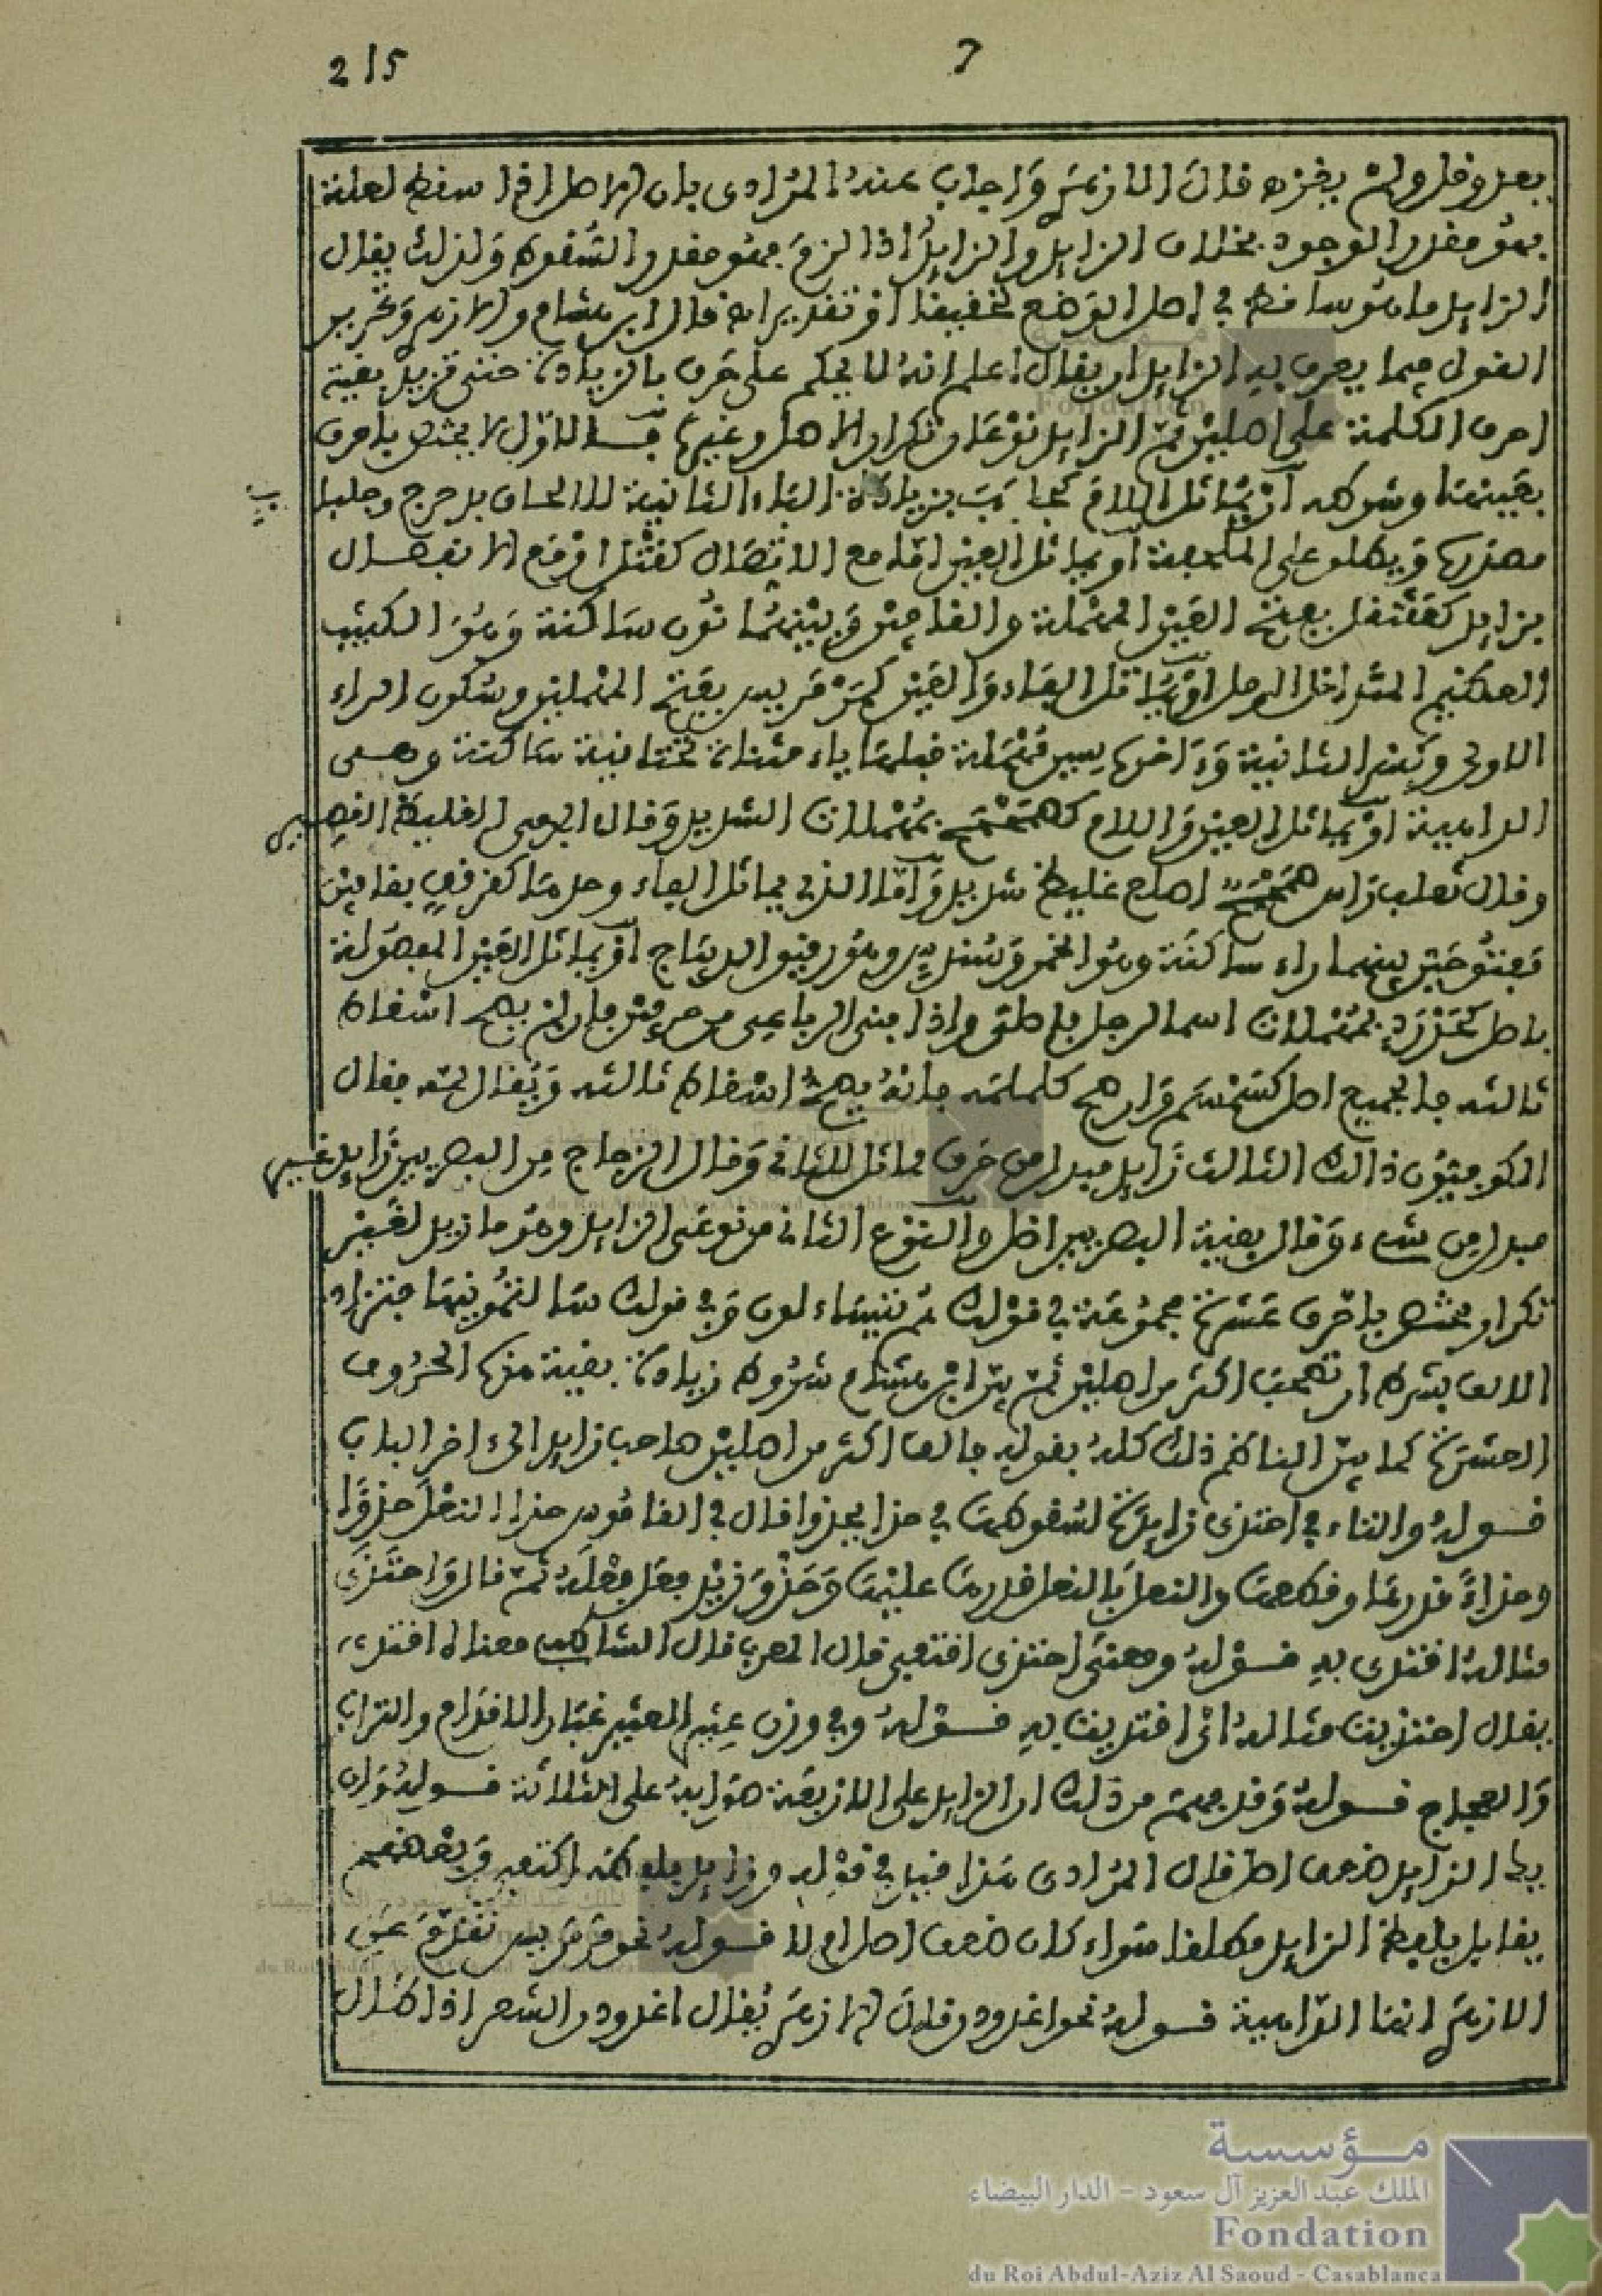 215
7
بيعد وقل ولم يغزه قال الازهري واجاب عنه المرادي بان الاصل اذا سقط لعلة
فهو مقدر الوجود بخلاف الزايد والزايد اذا لزم فهو مقدر السقوط ولذلك يقال
الزايد ما هو ساقط في اصل الوضع تحقيقا او تقديرا انه قال ابن هشام والازهري وتحرير
القول فيما يعرف به الزايد ان يقال اعلم انه لا يحكم على حرف بالزيادة حتى تزيد بقية
احرف الكلمة على اصلين ثم الزايد نوعان تكرار الاصل وغيره فالاول لا يختص باحرف
بعينها وشرطه ان يماثل اللام كجلبب بزيادة الباء الثانية للالحاق بدحرج وجلبا
بب
مصدرها ويطلق على الملحفة او يماثل العين اما مع الاتصال كقتل او مع الانفصال
بزايد كعقنقل بفتح العين المهملة والقافين وبينهما نون ساكنة وهو الكثيب
العظيم المتداخل الرمل او يماثل الفاء والعين كمرمريس بفتح الميمين وسكون الراء
الاولى وكسر الثانية وءاخرها سين مهملة قبلها ياء مثناة تحتانية ساكنة وهي
الداهية او يماثل العين واللام كصمحمح بمهملات الشديد وقال الجرمي الغليظ القصير
وقال ثعلب راس صمحمح اصلع غليظ شديد واما الذي يماثل الفاء وحدها كقرقف بقافين
مفتوحتين بينهما راء ساكنة وهو الخمر وسندس وهو رقيق الديباج او يماثل العين المفصولة
باصل كحدرد بمهملات اسما لرجل فاصلي واذا بني الرباعي من حرفين فان لم يصح اسقاط
ثالثه فالجميع اصل كسمسم وان صح كلملمه فانه يصح اسقاط ثالثه ويقال لمه فقال
الكوفيون ذلك الثالث زايد مبدل من حرف مماثل للثاني وقال الزجاج من البصريين زايد غير
مبدل من شيء وقال بقية البصريين اصل والنوع الثاني من نوعي الزايد وهو ما زيد لغير
تكرار مختص باحرف عشرة مجموعة في قولك هم يتساءلون وفي قولك سالتمونيها فتزاد
الالف بشرط ان تصحب اكثر من اصلين ثم بين ابن هشام شروط زيادة بقية هذه الحروف
العشرة كما بين الناظم ذلك كله بقوله فالف اكثر من اصلين صاحب زايد الى ءاخر الباب
قوله والتاء في احتذى زايدة لسقوطها في حذا يحذوا قال في القاموس حذا النعل حذوا
وحذاء قدرها وقطعها والنعل بالنعل قدرها عليها وحذو زيد فعل فعله ثم قال واحتذى
مثاله اقتدى به قوله ومعنى احتذى اقتفي قال المعرب قال الشاطبي معناه اقتدى
يقال احتذيت مثاله اي اقتديت به قوله وفي وزن عثير العثير غبار الاقدام والتراب
والعجاج قوله وقد فهم من ذلك ان الزايد على الاربعة صوابه على الثلاثة قوله وان
يك الزايد ضعف اصل قال المرادي هذا قيد في قوله وزايد بلفظه اكتفي وبعضهم
يقابل بلفظ الزايد مطلقا سواء كان ضعف اصل ام لا قوله نحو مرمريس تقدم عن
الازهري انها الداهية قوله نحو اغدودن قال الازهري يقال اغدودن الشعر اذا طال
مؤسسة
الملك عبد العزيز آل سعود - الدار البيضاء
Fondation
du Roi Abdul-Aziz Al Saoud - Casablanca